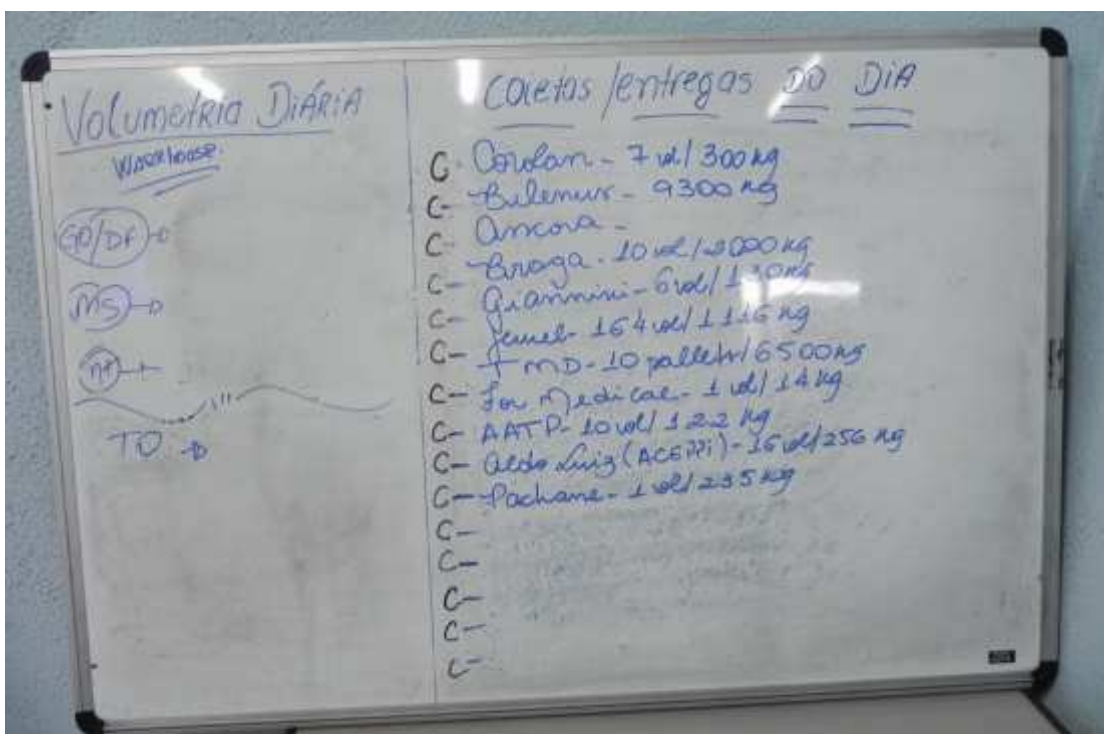 Volumetria Diária
Warehouse
GO/DF
MS
MT
TO
Coletas/entregas DO DIA
C- Corolan - 7 vol/300 kg
C- Bilenur - 9300 kg
C- Ancora -
C- Braga - 10 vol/2000 kg
C- Giannini - 6 vol/130 kg
C- 164 vol/1116 kg
C- FMD - 10 pallets/6500 kg
C- For Medical - 1 vol/14 kg
C- AATP - 10 vol/122 kg
C- Aldo Luiz (ACEPPI) - 16 vol/256 kg
C- Pachane - 1 vol/235 kg
C-
C-
C-
C-
C-